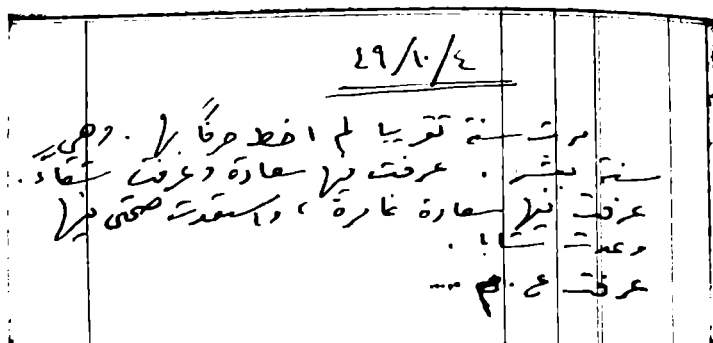 ٤٩/١٠/٤
مرت سنة تقريبا لم اخط حرفاً بها . وهي
سنة بشر . عرفت فيها سعادة وعرفت شقاءً .
عرفت فيها سعادة غامرة ، واستعدت صحتي فيها
وعدت شابا .
عرفت ع . م ...